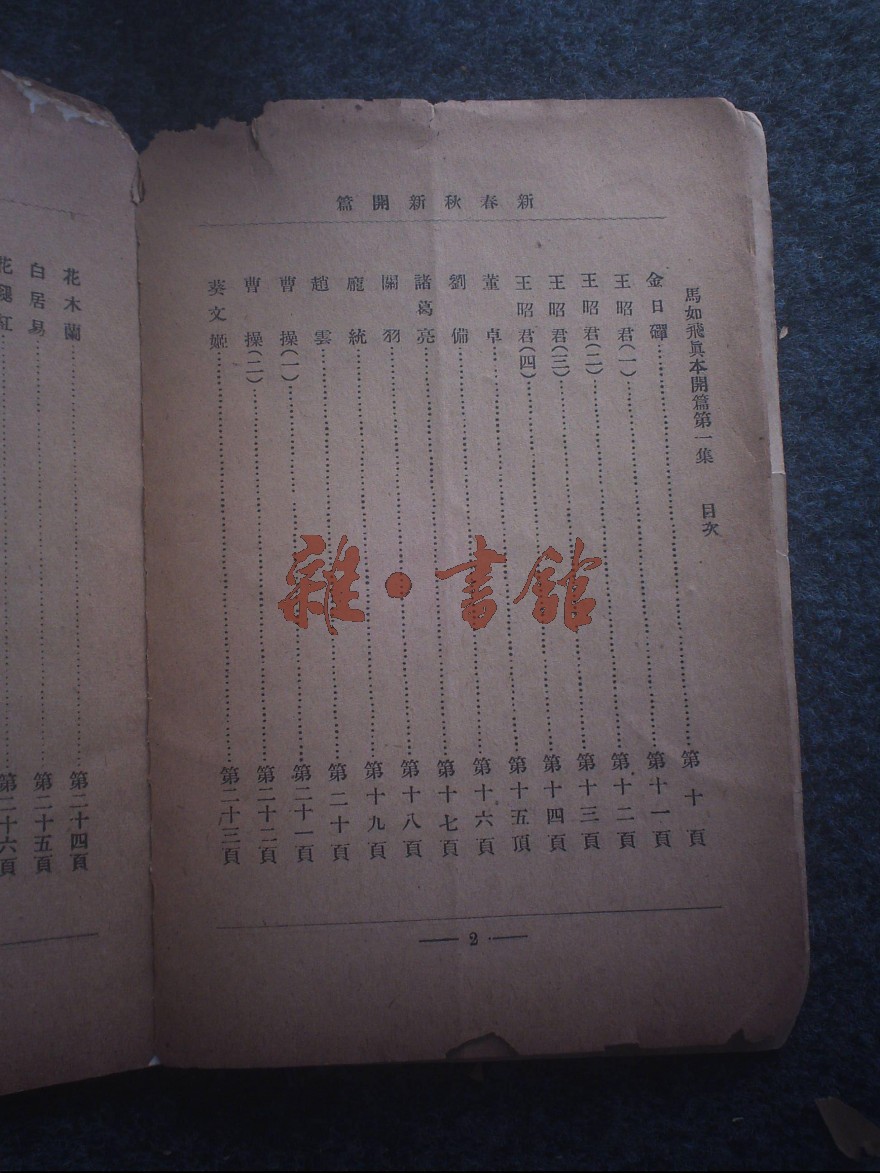 新春秋新開篇
馬如飛眞本開篇第一集 目次
金日磾……第十頁
王昭君(一)……第十一頁
王昭君(二)……第十二頁
王昭君(三)……第十三頁
王昭君(四)……第十四頁
董卓……第十五頂
劉備……第十六頁
諸葛亮……第十七頁
關羽……第十八頁
龐統……第十九頁
趙雲……第二十頁
曹操(一)……第二十一頁
曹操(二)……第二十二頁
葵文姬……第二十三頁
2
花木蘭……第二十四頁
白居易……第二十五頁
第二十六頁
雜·書館